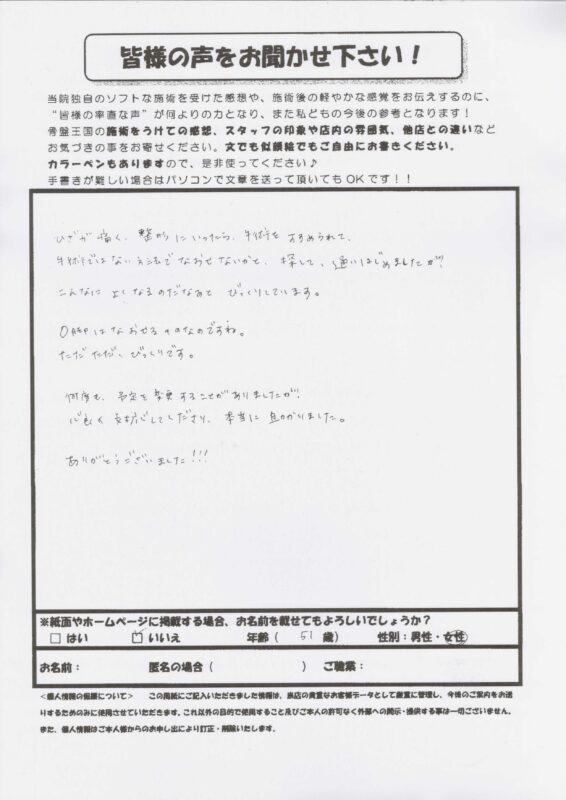 皆様の声をお聞かせ下さい!
当院独自のソフトな施術を受けた感想や、施術後の軽やかな感覚をお伝えするのに、
“皆様の率直な声”が何よりの力となり、また私どもの今後の参考となります!
骨盤王国の施術をうけての感想、スタッフの印象や店内の雰囲気、他店との違いなど
お気づきの事をお寄せください。文でも似顔絵でもご自由にお書きください。
カラーペンもありますので、是非使ってください♪
手書きが難しい場合はパソコンで文章を送って頂いてもOKです!!
ひざが痛く、整形にいったら、手術をすすめられて、
手術ではない方法でなおせないかと、探して、通いはじめましたが、
こんなに良くなるのだなあとびっくりしています。
O脚はなおせるものなのですね。
ただただ、びっくりです。
何度も、予定を変更することがありましたが、
心良く対応してくださり、本当に助かりました。
ありがとうございました!!!
※紙面やホームページに掲載する場合、お名前を載せてもよろしいでしょうか?
□ はい ☑ いいえ 年齢( 51 歳) 性別:男性・女性
お名前: 匿名の場合( ) ご職業:
<個人情報の保護について> この用紙にご記入いただきました情報は、当店の貴重なお客様データとして厳重に管理し、今後のご案内をお送
りするためのみに使用させていただきます。これ以外の目的で使用すること及びご本人の許可なく外部への開示・提供する事は一切ございません。
また、個人情報はご本人様からのお申し出により訂正・削除いたします。